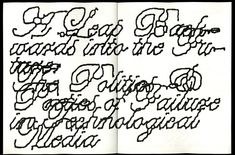 A Leap Back-
wards into the Fu-
ture:
The Politics &
Poetics of Failure
in Technological
Media